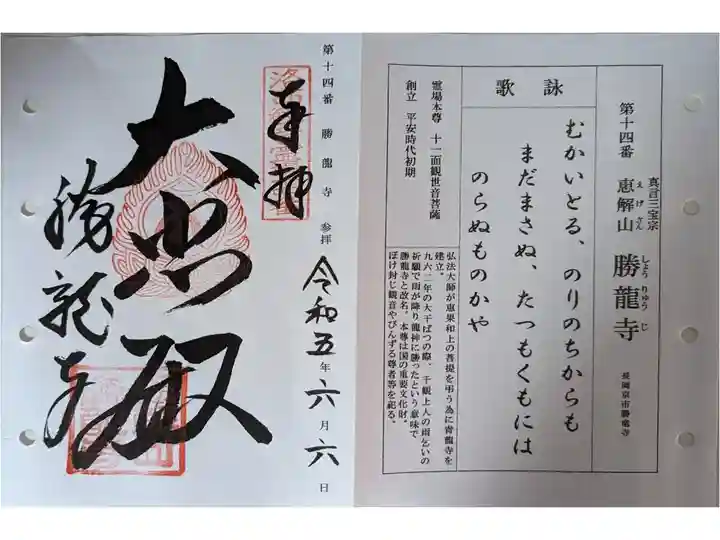 真言三宝宗
第十四番 恵解山 勝龍寺
えげさん
しょうりゅうじ
長岡京市勝竜寺
詠歌
むかいとる、のりのちからも
まだまさぬ、たつもくもには
のらぬものかや
霊場本尊 十一面観世音菩薩
創立 平安時代初期
弘法大師が恵果和上の菩提を弔う為に青龍寺を
建立。
九六二年の大干ばつの際、千観上人の雨乞いの
祈願で雨が降り龍神に勝ったという意味で
勝龍寺と改名。本尊は国の重要文化財。
ぼけ封じ観音やびんずる尊者等を祀る。
第十四番 勝龍寺 参拝 令和五年六月六日
奉拝
大悲殿
勝龍寺